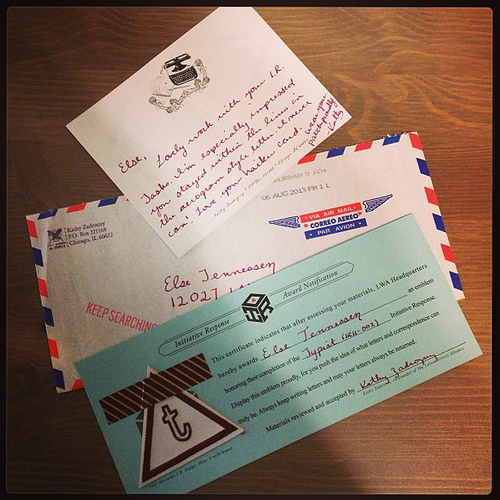 Else, Lovely work with your I.R.
Tasks. I'm especially impressed
you stayed within the lines in
the aerogram style letter. I never
can. Love your Writer Card. Wear your
patch proudly
Kathy
Kathy Zadrozny
P.O. Box 221168
Chicago, IL 60622
06 AUG 2013 PM 1 L
VIA AIR MAIL
CORREO AEREO
PAR AVION
Else Tennessen
12027
KEEP SEARCHING
Initiative Response
Award Notification
This certificate indicates that after assessing your materials, LWA Headquarters
hereby awards Else Tennessen an emblem
honoring their completion of the Typist (IR11-002) Initiative Response.
Display this emblem proudly, for you push the idea of what letters and correspondence can
truly be. Always keep writing letters and may your letters always be returned.
Materials reviewed and accepted by Kathy Zadrozny
t